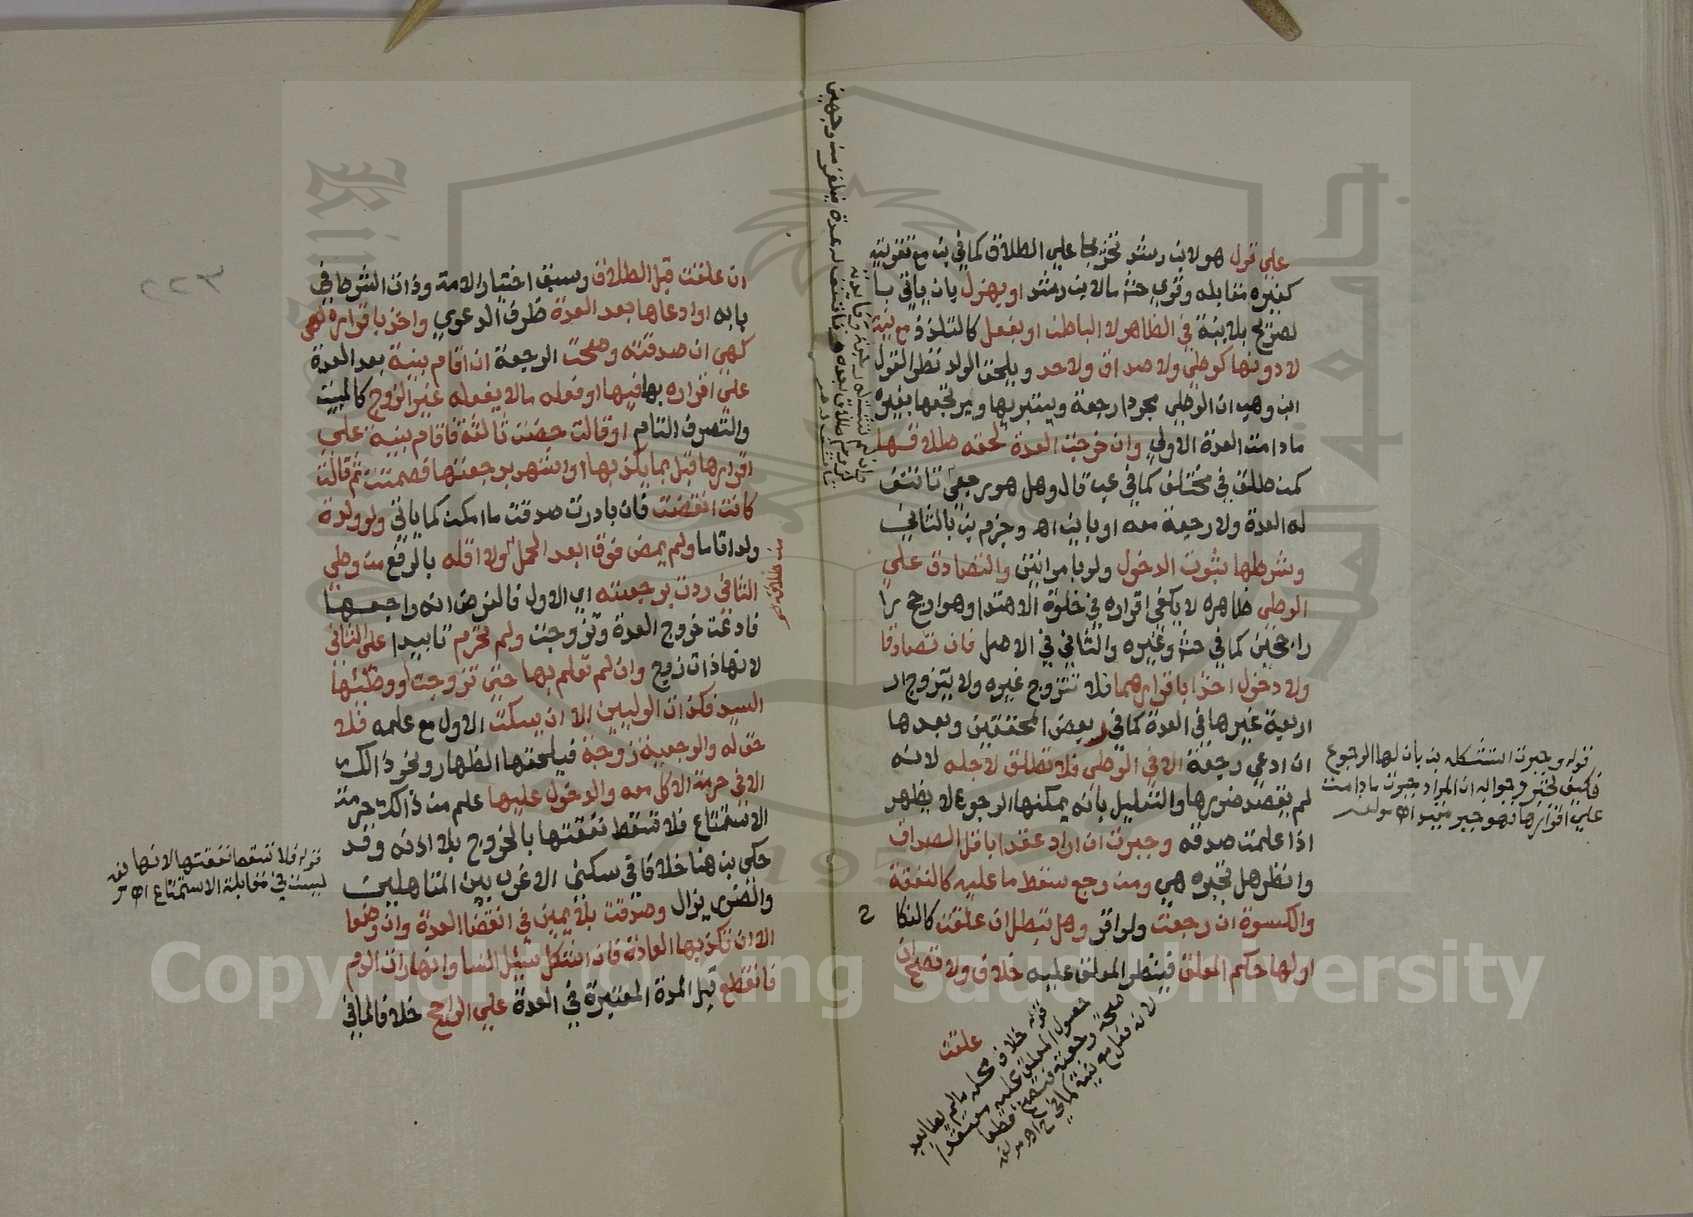 علي قول هو لابن رشد تخريجا علي الطلاق كما في بن مع تقويته
كغيره مقابله وقوي حش ما لابن رشد او بهزل بان ياتي با
لصريح بلا نية في الظاهر لا الباطن او بفعل كالتلذذ مع نية
لا دونها كوطئ ولا صداق ولا حد ويلحق الولد نظر القول
ابن وهب ان الوطئ مجردا رجعة ويستبريها ويرتجعها بغيره
ما دامت العدة الاولي وان خرجت العدة لحقه طلاقها
كمن طلق في مختلف كما في عب قال وهل هو رجعي تاتنف
له العدة ولا رجعة معه او باين اه وجزم بن بالثاني
وشرطها ثبوت الدخول ولو بامراتين والتصادق علي
الوطئ ظاهره لا يكفي اقراره في خلوة الاهتدا وهو ارجح
راجحين كما في حش وغيره والثاني في الاصل فان تصادقا
ولا دخول اخذا باقرارهما فلا تتزوج غيره ولا يتزوج
اربعة غيرها في العدة كما في بعض المحققين وبعدها
ان ادعي رجعة الا في الوطئ فلا تطلق لاجله لانه
لم يقصد ضررها والتعليل بانه يمكنها الرجوع لا يظهر
اذا علمت صدقه وجبرت ان اراد عقدا باقل الصداق
وانظر هل تجبره هي ومن رجع سقط ما عليه كالنفقة
والكسوة ان رجعت ولو اقر وهل تبطل ان علقت كالنكا ح
او لها حكم المعلق فينتظر المعلق عليه خلاف ولا تصح ان
علقت
قوله وجبرت استشكله بن بان لها الرجوع
فكيف تجبر وجوابه ان المراد جبرت ما دامت
علي اقرارها فهو جبر مقيد اه مولفه
قوله خلاف محله ما لم يطا بعد
حصول المعلق عليه معتقدا
صحة رجعته فتصح قطعا
لانه فعل مع نية كما في ح اه مولفه
ان علقت قبل الطلاق وسبق اختيار الامة وذات الشرط في
بابه او ادعاها بعد العدة ظرف الدعوي واخذ باقراره
كهي ان صدقته وصحت الرجعة ان اقام بينة بعد العدة
علي اقراره بها فيها او فعله ما لا يفعله غير الزوج كالمبيت
والتصرف التام او قالت حضت ثالثة فاقام بينة علي
اقرارها قبل بما يكذبها او اشهد برجعتها فصمتت ثم قالت
كانت انقضت فان بادرت صدقت ما امكن كما ياتي ولو ولدت
ولدا تاما ولم يمض فوق ابعد الحمل ولا اقله بالرفع من وطئ
من طلاق
الثاني ردت برجعته اي الاول فالفرض انه راجعها
فادعت خروج العدة وتزوجت ولم تحرم تابيدا علي الثاني
لانها ذات زوج وان لم تعلم بها حتي تزوجت او وطئها
السيد فكذات الوليين الا ان يسكت الاول مع علمه فلا
حق له والرجعية زوجة فيلحقها الظهار ونحو ذلك
الا في حرمة الاكل معه والدخول عليها علم من ذلك حرمة
الاستمتاع فلا تسقط نفقتها بالخروج بلا اذنه وقد
حكي بن هنا خلافا في سكني الاعزب بين المتاهلين
والضرر يزال وصدقت بلا يمين في انقضا العدة وان وضعا
الا ان تكذبها العادة فان اشكل سئل النسا وانها رات الدم
فانقطع قبل المدة المعتبرة في العدة علي الراجح خلافا لما في
قوله فلا تسقط نفقتها لانها
ليست في مقابلة الاستمتاع اه
٣٢٢
King Saud University
جامعة الملك سعود
1957
Copyright © King Saud University